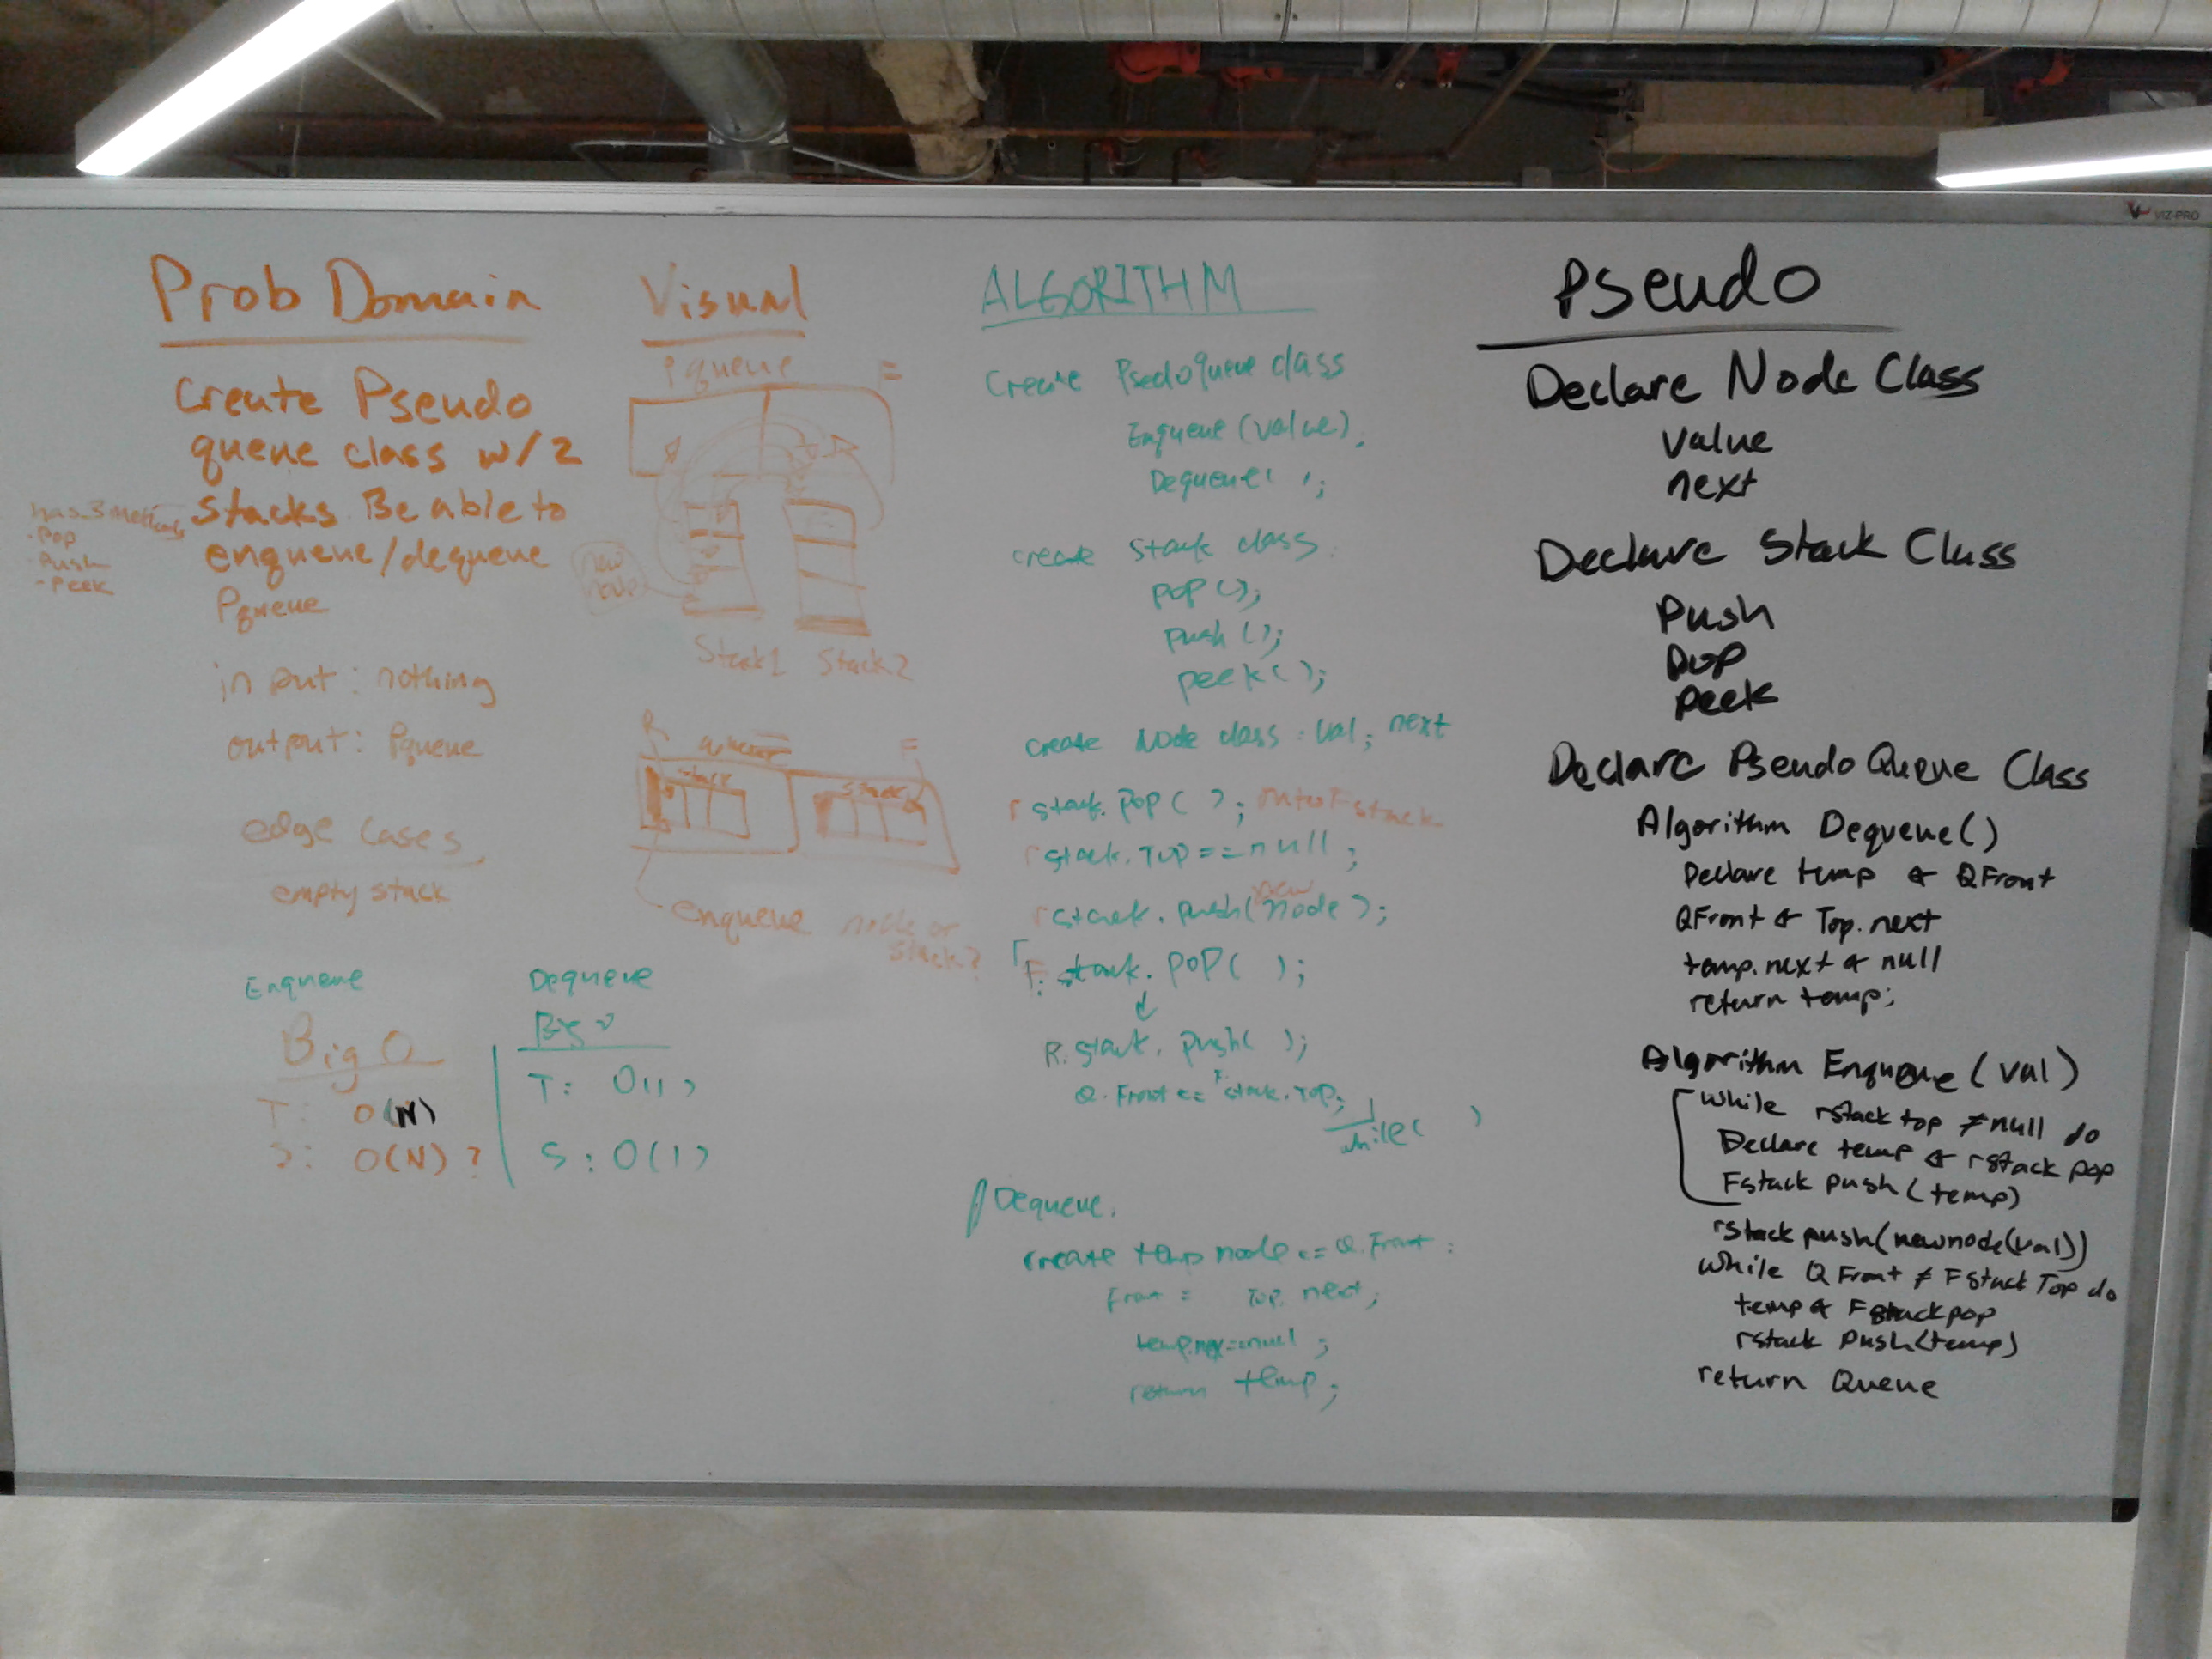 VIZ-PRO
Prob Domain
Create Pseudo
queue class w/2
stacks. Be able to
enqueue/dequeue
Pqueue
has 3 methods
- Pop
- Push
- Peek
input: nothing
output: Pqueue
edge cases
empty stack
Enqueue
Big O
T: O(N)
S: O(N) ?
Dequeue
Big O
T: O(1)
S: O(1)
Visual
Pqueue =
new
node
Stack1 Stack2
R
Queue F
stack stack
enqueue node or
stack?
ALGORITHM
Create PsedoQueue class
Enqueue (value),
Dequeue( );
create Stack class
pop();
push();
peek();
create Node class: val; next
r stack.pop( ); into F stack
r stack.TOP == null ;
new
r stack.push(node);
F. stack.pop( );
R. stack.push( );
Q. Front <= F stack.TOP;
while( )
Dequeue.
create temp node <= Q.Front ;
Front = Top.next;
temp.nex=null ;
return temp;
Pseudo
Declare Node Class
Value
next
Declare Stack Class
Push
Pop
Peek
Declare PseudoQueue Class
Algorithm Dequeue()
Declare temp ← QFront
QFront ← Top.next
temp.next ← null
return temp;
Algorithm Enqueue (val)
while rstack top ≠ null do
Declare temp ← rstack pop
Fstack push (temp)
rstack push(newnode(val))
while Q Front ≠ Fstack Top do
temp ← Fstack pop
rstack Push(temp)
return Queue